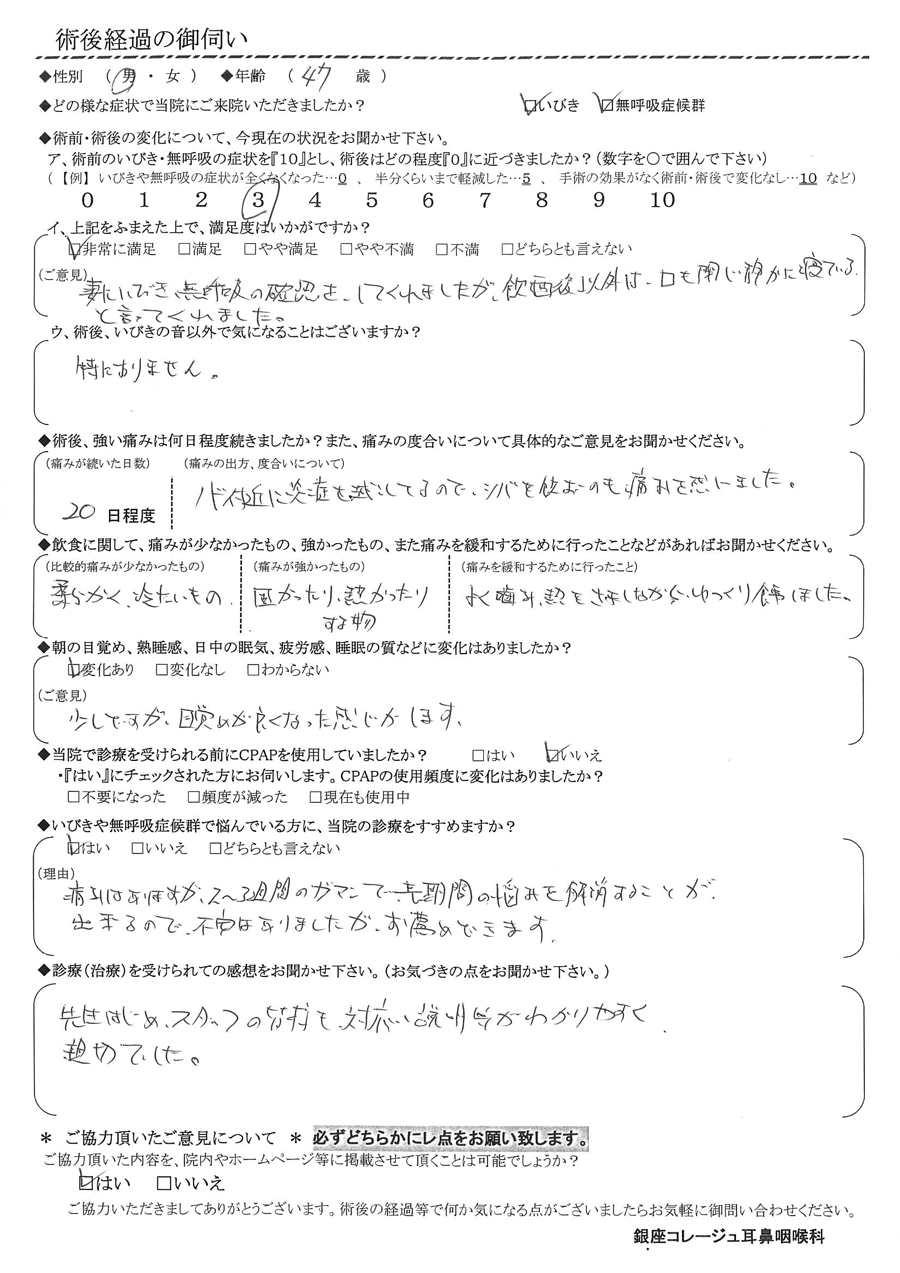 術後経過の御伺い
◆性別 ( 男 ・ 女 ) ◆年齢 ( 47 歳 )
◆どの様な症状で当院にご来院いただきましたか? ☑いびき ☑無呼吸症候群
◆術前・術後の変化について、今現在の状況をお聞かせ下さい。
ア、術前のいびき・無呼吸の症状を『10』とし、術後はどの程度『0』に近づきましたか?(数字を〇で囲んで下さい)
(【例】 いびきや無呼吸の症状が全くなくなった…0 、 半分くらいまで軽減した…5 、 手術の効果がなく術前・術後で変化なし…10 など)
0 1 2 3 4 5 6 7 8 9 10
イ、上記をふまえた上で、満足度はいかがですか?
☑非常に満足 □満足 □やや満足 □やや不満 □不満 □どちらとも言えない
(ご意見)
妻にいびき、無呼吸の確認を、してくれましたが、飲酒後以外は、口も閉じ静かに寝ている
と言ってくれました。
ウ、術後、いびきの音以外で気になることはございますか?
特にありません。
◆術後、強い痛みは何日程度続きましたか?また、痛みの度合いについて具体的なご意見をお聞かせください。
(痛みが続いた日数) (痛みの出方、度合いについて)
20 日程度
ノド付近に炎症を起こしてるので、ツバを飲むのも、痛みを感じました。
◆飲食に関して、痛みが少なかったもの、強かったもの、また痛みを緩和するために行ったことなどがあればお聞かせください。
(比較的痛みが少なかったもの) (痛みが強かったもの) (痛みを緩和するために行ったこと)
柔らかく、冷たいもの 固かったり、熱かったり よく噛み、熱をさましながら、ゆっくり食しました。
する物
◆朝の目覚め、熟睡感、日中の眠気、疲労感、睡眠の質などに変化はありましたか?
☑変化あり □変化なし □わからない
(ご意見)
少しですが、目覚めが良くなった感じがします。
◆当院で診療を受けられる前にCPAPを使用していましたか? □はい ☑いいえ
・『はい』にチェックされた方にお伺いします。CPAPの使用頻度に変化はありましたか?
□不要になった □頻度が減った □現在も使用中
◆いびきや無呼吸症候群で悩んでいる方に、当院の診療をすすめますか?
☑はい □いいえ □どちらとも言えない
(理由)
痛みはありますが、2〜3週間のガマンで、長期間の悩みを解消することが、
出来るので、不安はありましたが、お薦めできます。
◆診療(治療)を受けられての感想をお聞かせ下さい。(お気づきの点をお聞かせ下さい。)
先生はじめ、スタッフの皆様も、対応い説明等がわかりやすく
親切でした。
* ご協力頂いたご意見について * 必ずどちらかにレ点をお願い致します。
ご協力頂いた内容を、院内やホームページ等に掲載させて頂くことは可能でしょうか?
☑はい □いいえ
ご協力いただきましてありがとうございます。術後の経過等で何か気になる点がございましたらお気軽に御問い合わせください。
銀座コレージュ耳鼻咽喉科